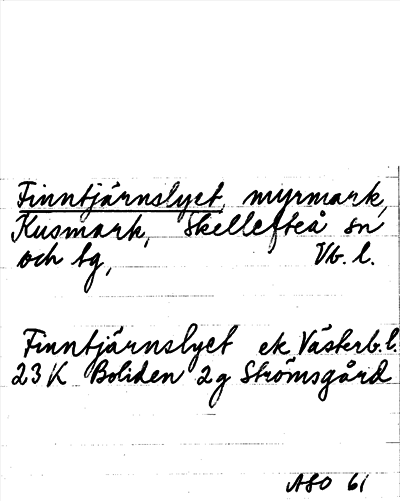 Finntjärnslyet, myrmark,
Kusmark, Skellefteå sn
och tg, Vb. l.
Finntjärnslyet ek. Västerb. l.
23 K Boliden 2g Strömsgård
ASO 61